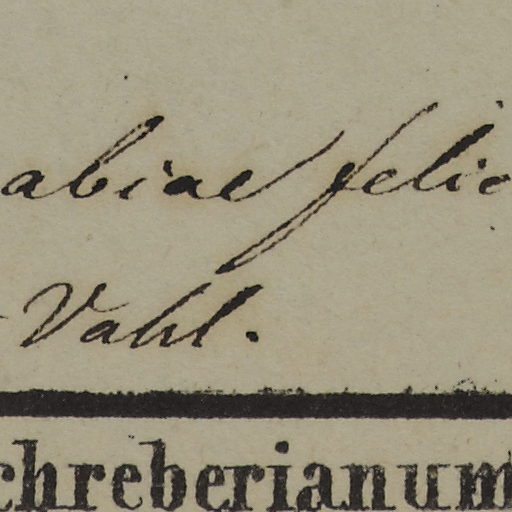 abiae felic
Vahl.
chreberianum